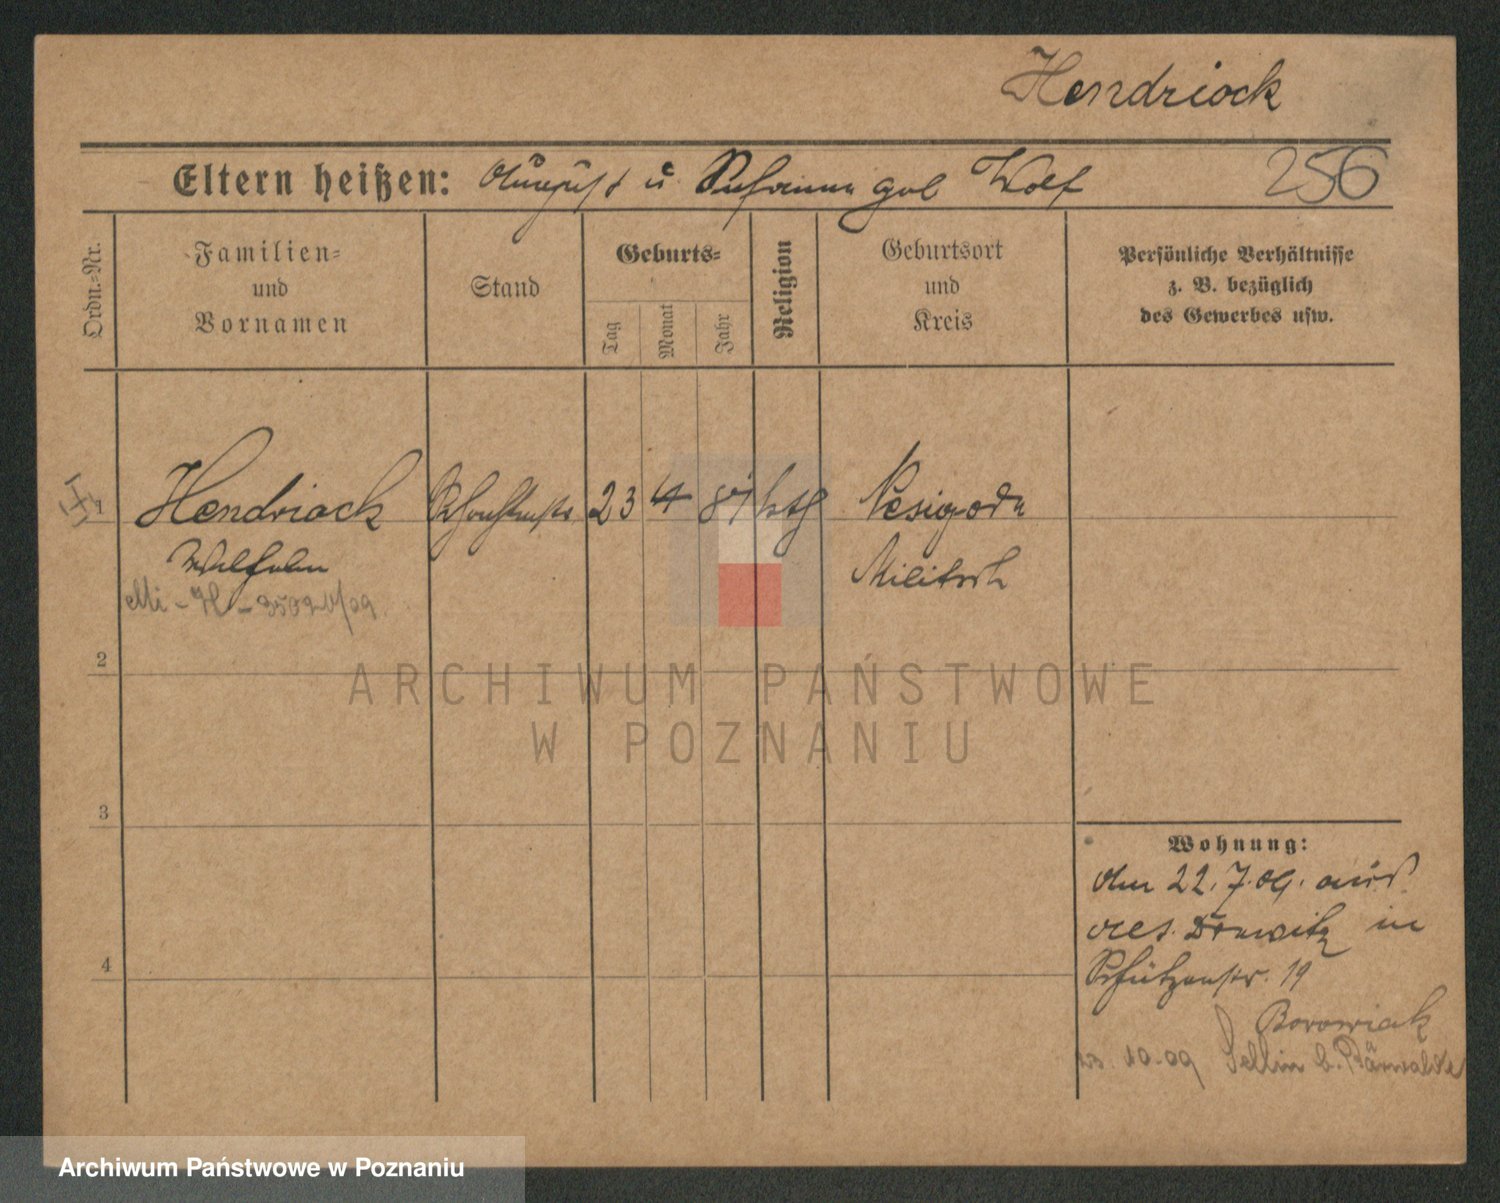 Hendriock
256
Eltern heißen: August u. Susanna geb Wolf
Ordn.-Nr.
Familien- und Vornamen
Stand
Geburts-
Tag
Monat
Jahr
Religion
Geburtsort und Kreis
Persönliche Verhältnisse
z. B. bezüglich
des Gewerbes usw.
1 Hendriock 23 4 87 kth Nesigode
Wilhelm Militsch
Mi - H -
2
3
4
Wohnung:
Am 22.7.09. aus
in
Schützenstr. 19
Borowiak
23. 10. 09 Sellin b. Bärwalde
ARCHIWUM PAŃSTWOWE
W POZNANIU
Archiwum Państwowe w Poznaniu